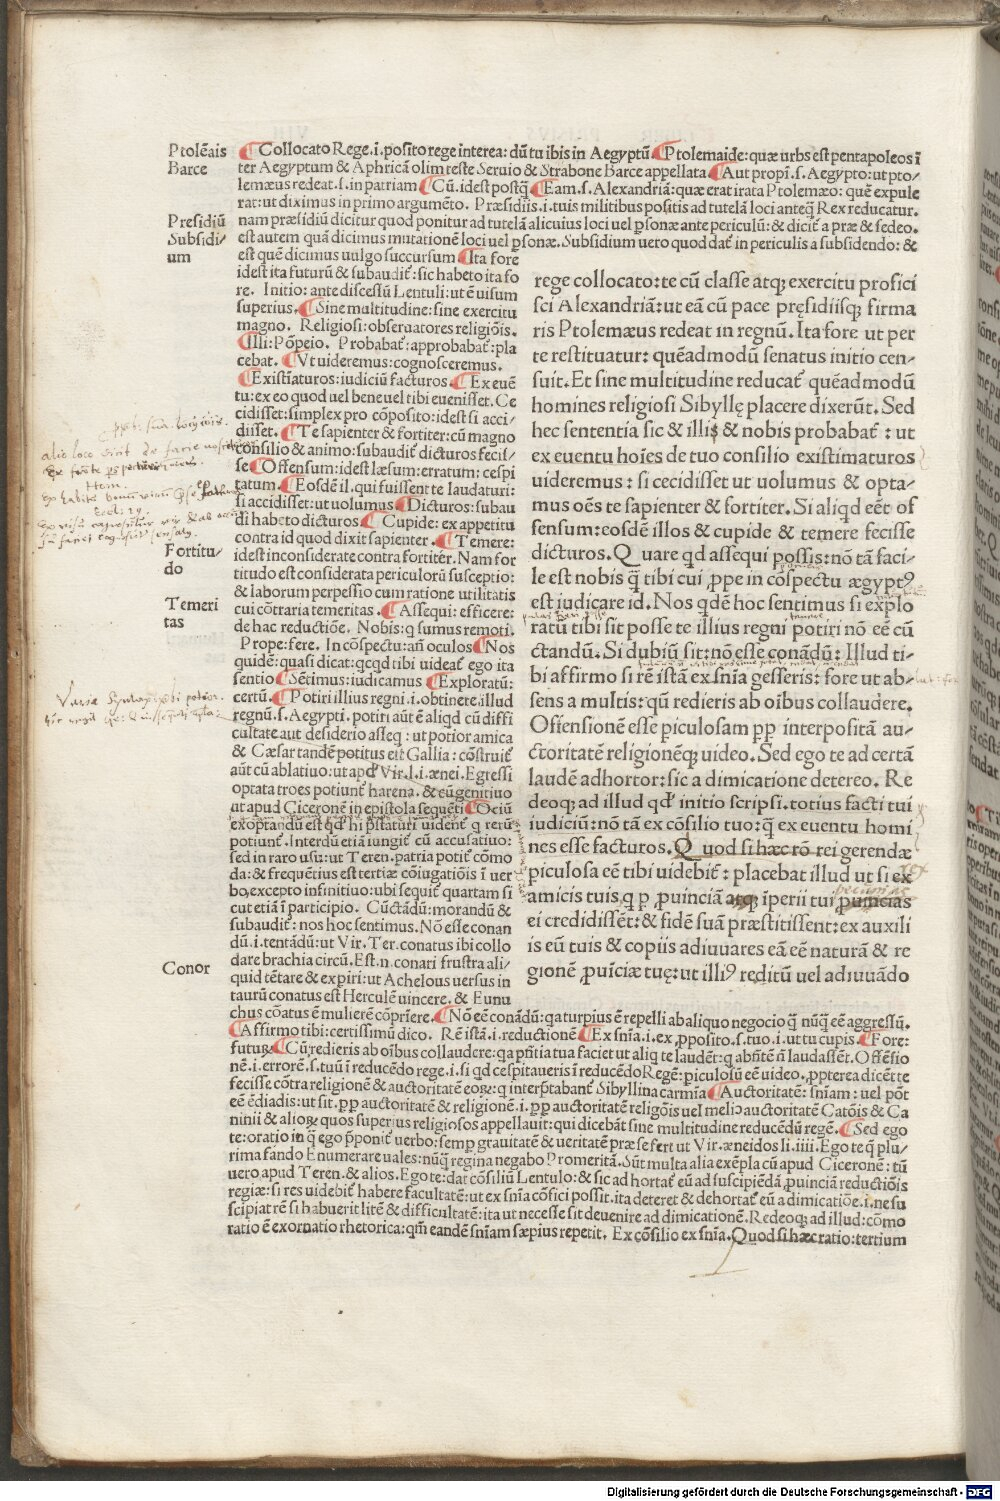 Ptolēais
Barce
Presidiū
Subsidi/
um
Fortitu/
do
Temeri
tas
Conor
Collocato Rege.i.posito rege interea: dū tu ibis in Aegyptū. Ptolemaide: quæ urbs est pentapoleos ī
ter Aegyptum & Aphricā olim teste Seruio & Strabone Barce appellata. Aut propī.s.Aegypto: ut pto/
lemæus redeat.s.in patriam Cū.idest postq̄. Eam.s.Alexandriā: quæ erat irata Ptolemæo: quē expule
rat: ut diximus in primo argumēto. Præsidiis.i.tuis militibus positis ad tutelā loci anteq̄ Rex reducatur.
nam præsidiū dicitur quod ponitur ad tutelā alicuius loci uel p̄sonæ ante periculū: & dicit̄ a præ & sedeo.
est autem quā dicimus mutationē loci uel p̄sonæ. Subsidium uero quod dat̄ in periculis a subsidendo: &
est quē dicimus uulgo succursum Ita fore
idest ita futurū & subaudit̄: sic habeto ita fo
re. Initio: ante discessū Lentuli: ut ē uisum
superius. Sine multitudine: sine exercitu
magno. Religiosi: obseruatores religiōis.
Illi: Pōpeio. Probabat̄: approbabat̄: pla
cebat. Vt uideremus: cognosceremus.
Existīaturos: iudiciū facturos. Ex euē
tu: ex eo quod uel bene uel tibi euenisset. Ce
cidisset: simplex pro cōposito: idest si acci/
disset. Te sapienter & fortiter: cū magno
consilio & animo: subaudit̄ dicturos fecis/
se Offensum: idest læsum: erratum: cespi
tatum. Eosdē il. qui fuissent te laudaturi:
si accidisset: ut uolumus Dicturos: subau
di habeto dicturos. Cupide: ex appetitu
contra id quod dixit sapienter. Temere:
idest inconsiderate contra fortiter. Nam for
titudo est considerata periculorū susceptio:
& laborum perpessio cum ratione utilitatis
cui cōtraria temeritas. Assequi: efficere:
de hac reductiōe. Nobis: q sumus remoti.
Prope: fere. In cōspectu: añ oculos Nos
quidē: quasi dicat: qcqd tibi uideat̄ ego ita
sentio Sētimus: iudicamus Exploratū:
certū. Potiri illius regni.i.obtinere illud
regnū.s.Aegypti. potiri aūt ē aliqd cū diffi
cultate aut desiderio asseq: ut potior amica
& Cæsar tandē potitus eit Gallia: cōstruit̄
aūt cū ablatiuo: ut apd Vir.l.i.ænei. Egressi
optata troes potiunt̄ harena. & cū genitiuo
ut apud Ciceronē in epistola sequēti Ociū
exoptandū est qd̄ hi p̄staturi uident̄ q rerū
potiunt̄. Interdū etiā iungit̄ cū accusatiuo:
sed in raro usu: ut Teren. patria potit̄ cōmo
da: & frequētius est tertiæ cōiugatiōis ī uer
bo, excepto infinitiuo: ubi sequit̄ quartam si
cut etiā ī participio. Cūctādū: morandū &
subaudit̄: nos hoc sentimus. Nō esse conan
dū.i.tentādū: ut Vir. Ter. conatus ibi collo
dare brachia circū. Est.n.conari frustra ali/
quid tētare & expiri: ut Achelous uersus in
taurū conatus est Herculē uincere. & Eunu
chus cōatus ē mulierē cōprīere. Nō eē conādū: qa turpius ē repelli ab aliquo negocio q̄ nūq̄ eē aggressū.
Affirmo tibi: certissimū dico. Rē istā.i.reductionē Ex sn̄ia.i.ex ꝓposito.s.tuo.i.ut tu cupis. Fore:
futuꝝ. Cū redieris ab oībus collaudere: qa p̄ntia tua faciet ut aliq te laudēt: q absn̄te n̄ laudassēt. Offēsio
nē.i.errorē.s.tuū ī reducēdo rege.i.si qd cespitaueris ī reducēdo Regē: piculosū eē uideo. ꝓpterea dicēt te
fecisse cōtra religionē & auctoritatē eoꝝ: q interp̄tabant̄ Sibyllina carmīa Auctoritatē: sn̄iam: uel pōt
eē ēdiadis: ut sit. ꝓp auctoritatē & religionē.i.ꝓp auctoritatē religōis uel meliꝰ auctoritatē Catōis & Ca
ninii & alioꝝ quos superius religiosos appellauit: qui dicebāt sine multitudine reducēdū regē. Sed ego
te: oratio in q̄ ego p̄ponit̄ uerbo: semp grauitatē & ueritatē præ se fert ut Vir. æneidos li.iiii. Ego te q̄ plu/
rima fando Enumerare uales: nūq̄ regina negabo Promeritā. Sūt multa alia exēpla cū apud Ciceronē: tū
uero apud Teren. & alios. Ego te: dat cōsiliū Lentulo: & sic ad hortat̄ eū ad suscipiēdā ꝓuinciā reductiōis
regiæ: si res uidebit̄ habere facultatē: ut ex sn̄ia cōfici possit. ita deteret & dehortat̄ eū a dimicatiōe.i.ne su
scipiat rē si habuerit litē & difficultatē: ita ut necesse sit deuenire ad dimicationē. Redeoꝗ ad illud: cōmo
ratio ē exornatio rhetorica: qm̄ eandē sn̄iam sæpius repetit. Ex cōsilio ex sn̄ia. Quod si hæc ratio: tertium
rege collocato: te cū classe atqꝫ exercitu profici
sci Alexandriā: ut eā cū pace pręsidiisqꝫ firma
ris Ptolemæus redeat in regnū. Ita fore ut per
te restituatur: quēadmodū senatus initio cen/
suit. Et sine multitudine reducat̄ quēadmodū
homines religiosi Sibyllę placere dixerūt. Sed
hec sententia sic & illis & nobis probabat̄: ut
ex euentu hoīes de tuo consilio existimaturos
uideremus: si cecidisset ut uolumus & opta/
mus oēs te sapienter & fortiter. Si aliqd eēt of
fensum: eosdē illos & cupide & temere fecisse
dicturos. Quare qd assequi possis: nō tā faci/
le est nobis q̄ tibi cui ꝓpe in cōspectu ægyptꝰ
est iudicare id. Nos qdē hoc sentimus si explo
ratū tibi sit posse te illius regni potiri nō eē cū
ctandū. Si dubiū sit: nō esse conādū: Illud ti/
bi affirmo si rē istā ex sn̄ia gesseris: fore ut ab/
sens a multis: qū redieris ab oībus collaudere.
Offensionē esse piculosam ꝓp interpositā au/
ctoritatē religionēqꝫ uideo. Sed ego te ad certā
laudē adhortor: sic a dimicatione detereo. Re
deoqꝫ ad illud qd̄ initio scripsi. totius facti tui
iudiciū: nō tā ex cōsilio tuo: q̄ ex euentu homi
nes esse facturos. Quod si hæc rō rei gerendæ
piculosa eē tibi uidebit̄: placebat illud ut si ex
amicis tuis q p ꝓuinciā atqꝫ īperii tui ꝓuincias
ei credidissēt: & fidē suā præstitissent: ex auxili
is eū tuis & copiis adiuuares eā eē naturā & re
gionē ꝓuīciæ tuę: ut illiꝰ reditū uel adiuuādo
Digitalisierung gefördert durch die Deutsche Forschungsgemeinschaft - DFG